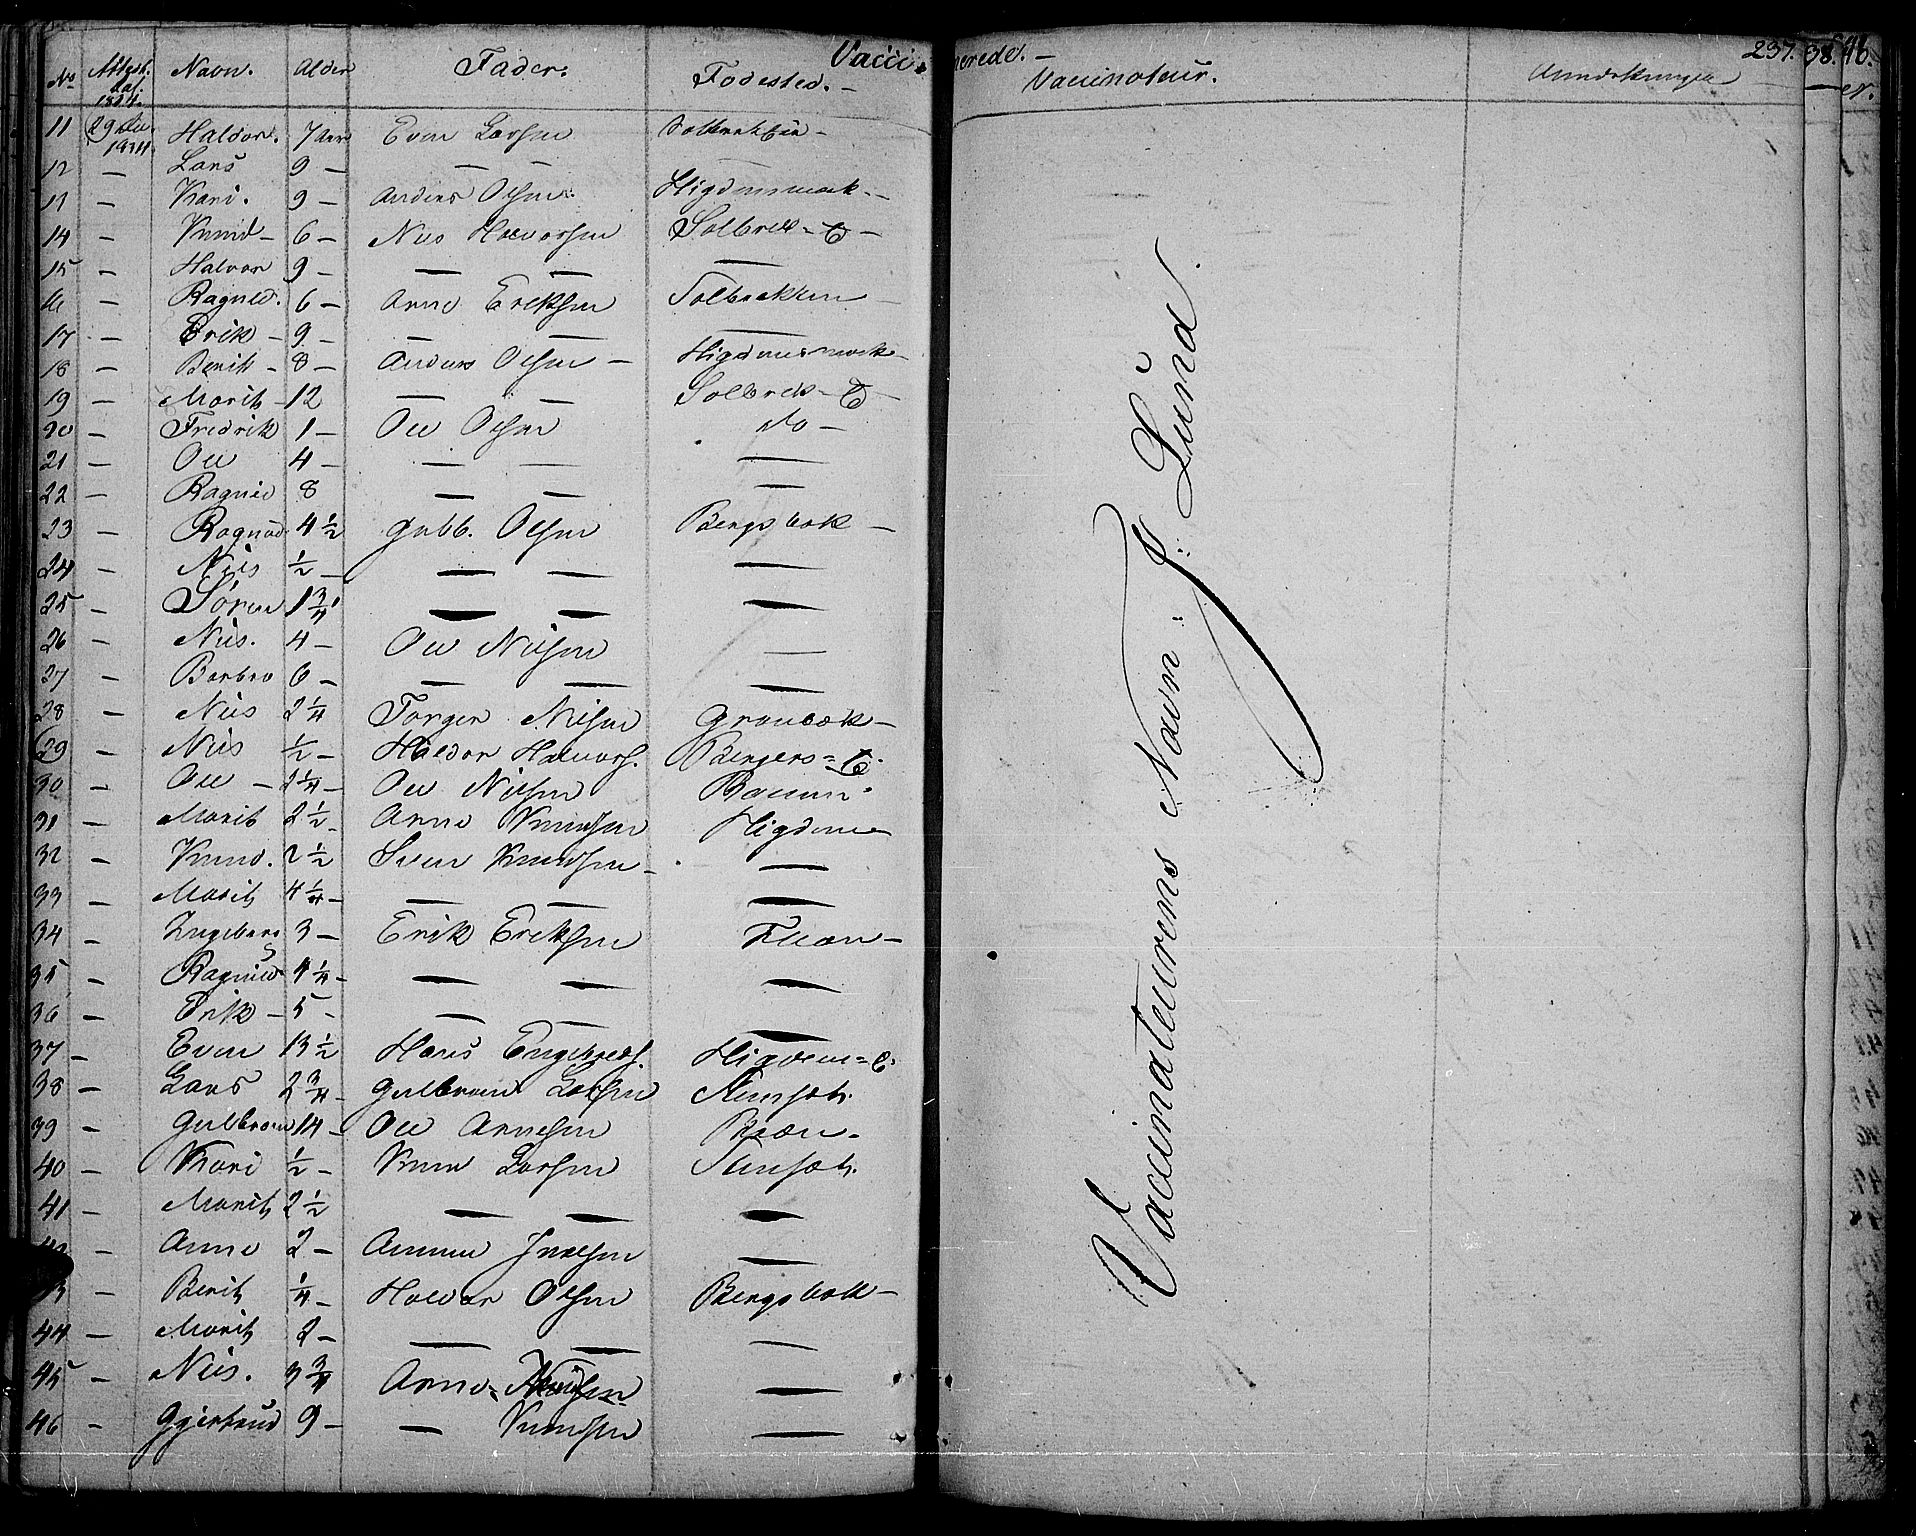 Vaccinerede. - 237.
No Attest. Dat. 1824. Navn. Alder Fader. Fødested. - Vaccinateur. Anmærkninger
11 29 1824 Haldor. 7 Aar Even Larsen
12 - Lars 9 - — —
13 - Kari. 9 - Anders Olsen Higdensmark -
14 - Knud - 6 - Nils Halvorsen Solbrek - E -
15 - Halvor 9 - — — —
16 - Ragned. 6 - Arne Eriksen Solbrekken -
17 - Erik - 9 - — — —
18 - Berit - 8 - Anders Olsen - Higdensmark -
19 - Marit - 12 — — Solbrek - E -
20 - Fredrik 1 - Ole Olsen do -
21 - Ole 4 - — — —
22 - Ragned 8 — — —
23 - Ragned 4 1/2 Gulb. Olsen Bergsbak -
24 - Nils 1/2 - — — —
25 - Sören 1 3/4 — — —
26 - Nils. 4 - Ole Nilsen —
27 - Barbro 6 - — — —
28 - Nils 2 1/4 Torger Nilsen Grønbæk -
29 - Nils 1/2 - Haldor Halvors. Bergers = E.
30 - Ole - 2 1/4 - Ole Nilsen
31 - Marit 2 1/2 - Arne Knudsen Higden
32 - Knud. 2 1/2 Sven Knudsen - —
33 - Marit 4 1/4 - — — —
34 - Ingeborg 3 - Erik Eriksen -
35 - Ragned 4 1/4 - — — —
36 - Erik - 5 - — — —
37 - Even 13 1/2 Hans Engebreds. Higden = E.
38 - Lars 2 3/4 - Gulbrand Larsen Stensæt.
39 - Gulbrand 14 - Ole Arnesen Bræen -
40 - Kari 1/2 - Knud Larsen Stensæt.
41 - Marit 2 1/2 — — —
42 - Anne 2 - Amund —
43 - Berit 1/4 - Halvor Olsen Bergsbak -
44 - Marit 2 - — — —
45 - Nils. 3 3/4 Arne —
46 - Gjertrud 9 - — Knudsen —
Vaccinateurens Navn: J: Lund.